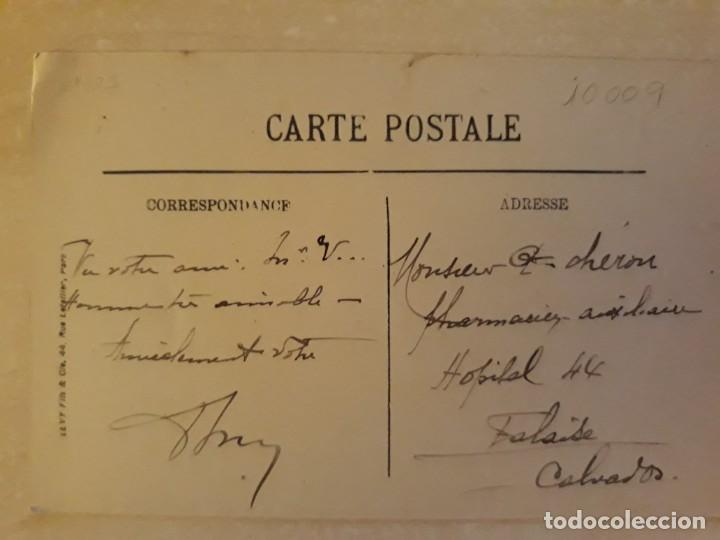 10009
CARTE POSTALE
CORRESPONDANCE
ADRESSE
Vu votre ami. Mr. V...
Homme très aimable —
Amicalement votre
Monsieur Chéron
pharmacien auxiliaire
Hopital 44
Falaise
Calvados.
LEVY Fils & Cie, 44, Rue Letellier, Paris
todocoleccion.net